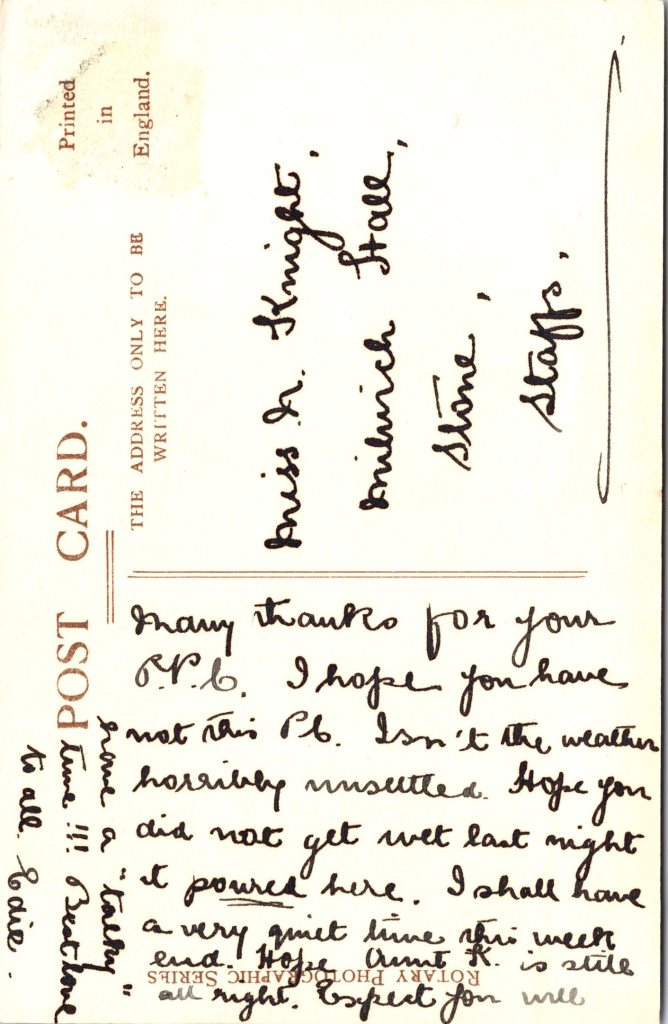 POST CARD.
THE ADDRESS ONLY TO BE
WRITTEN HERE.
Printed
in
England.
Miss N. Knight,
Milwich Hall,
Stone,
Staffs.
Many thanks for your
P.P.C. I hope you have
not this P.C. Isn't the weather
horribly unsettled. Hope you
did not get wet last night
it poured here. I shall have
a very quiet time this week
end. Hope Aunt K. is still
all right. Expect you will
have a "talky"
time!!! Best love
to all. Edie.
ROTARY PHOTOGRAPHIC SERIES